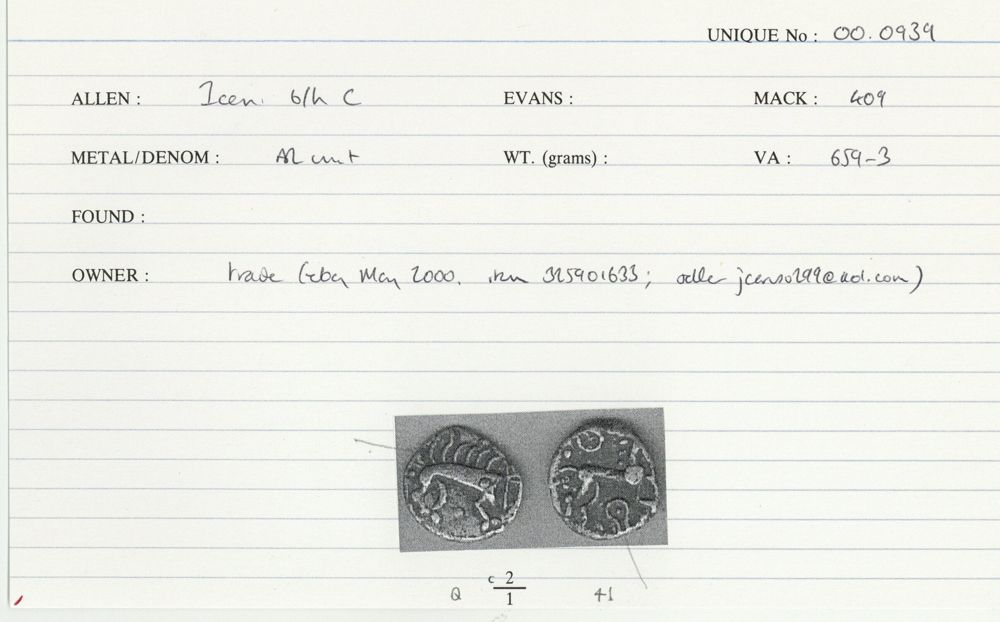 UNIQUE No : 00.0939
ALLEN : Icen. b/h C EVANS : MACK : 409
METAL/DENOM : AR unit WT. (grams) : VA : 659-3
FOUND :
OWNER : trade (ebay May 2000, item 325901633; seller @aol.com)
c 2
Q 1 41